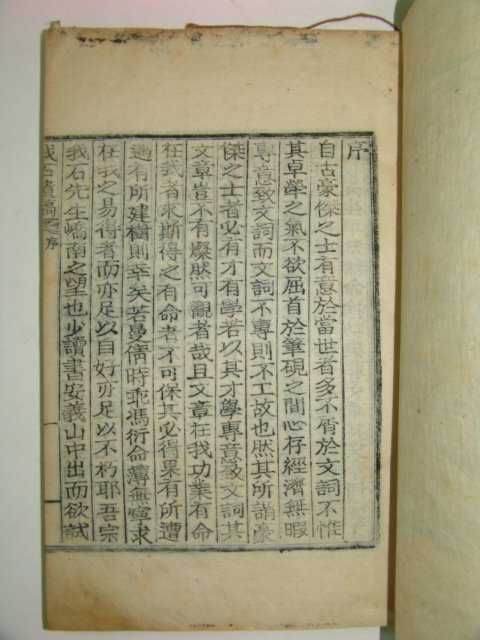 序
自古豪傑之士有意於當世者多不屑於文詞不惟
其卓犖之氣不欲屈首於筆硯之間心存經濟無暇
專意致文詞而文詞不專則不工故也然其所謂豪
傑之士者必有才有學若以其才學專意致文詞其
文章豈不有燦然可觀者哉且文章在我功業有命
在我者求斯得之有命者不可保其必得果有所遭
遇有所建樹則幸矣若曼倩時乖馮衍命薄無寧求
在我之易得者而亦足以自好亦足以不朽耶吾宗
我石先生嶠南之望也少讀書安義山中出而欲試
我石遺稿 序 一